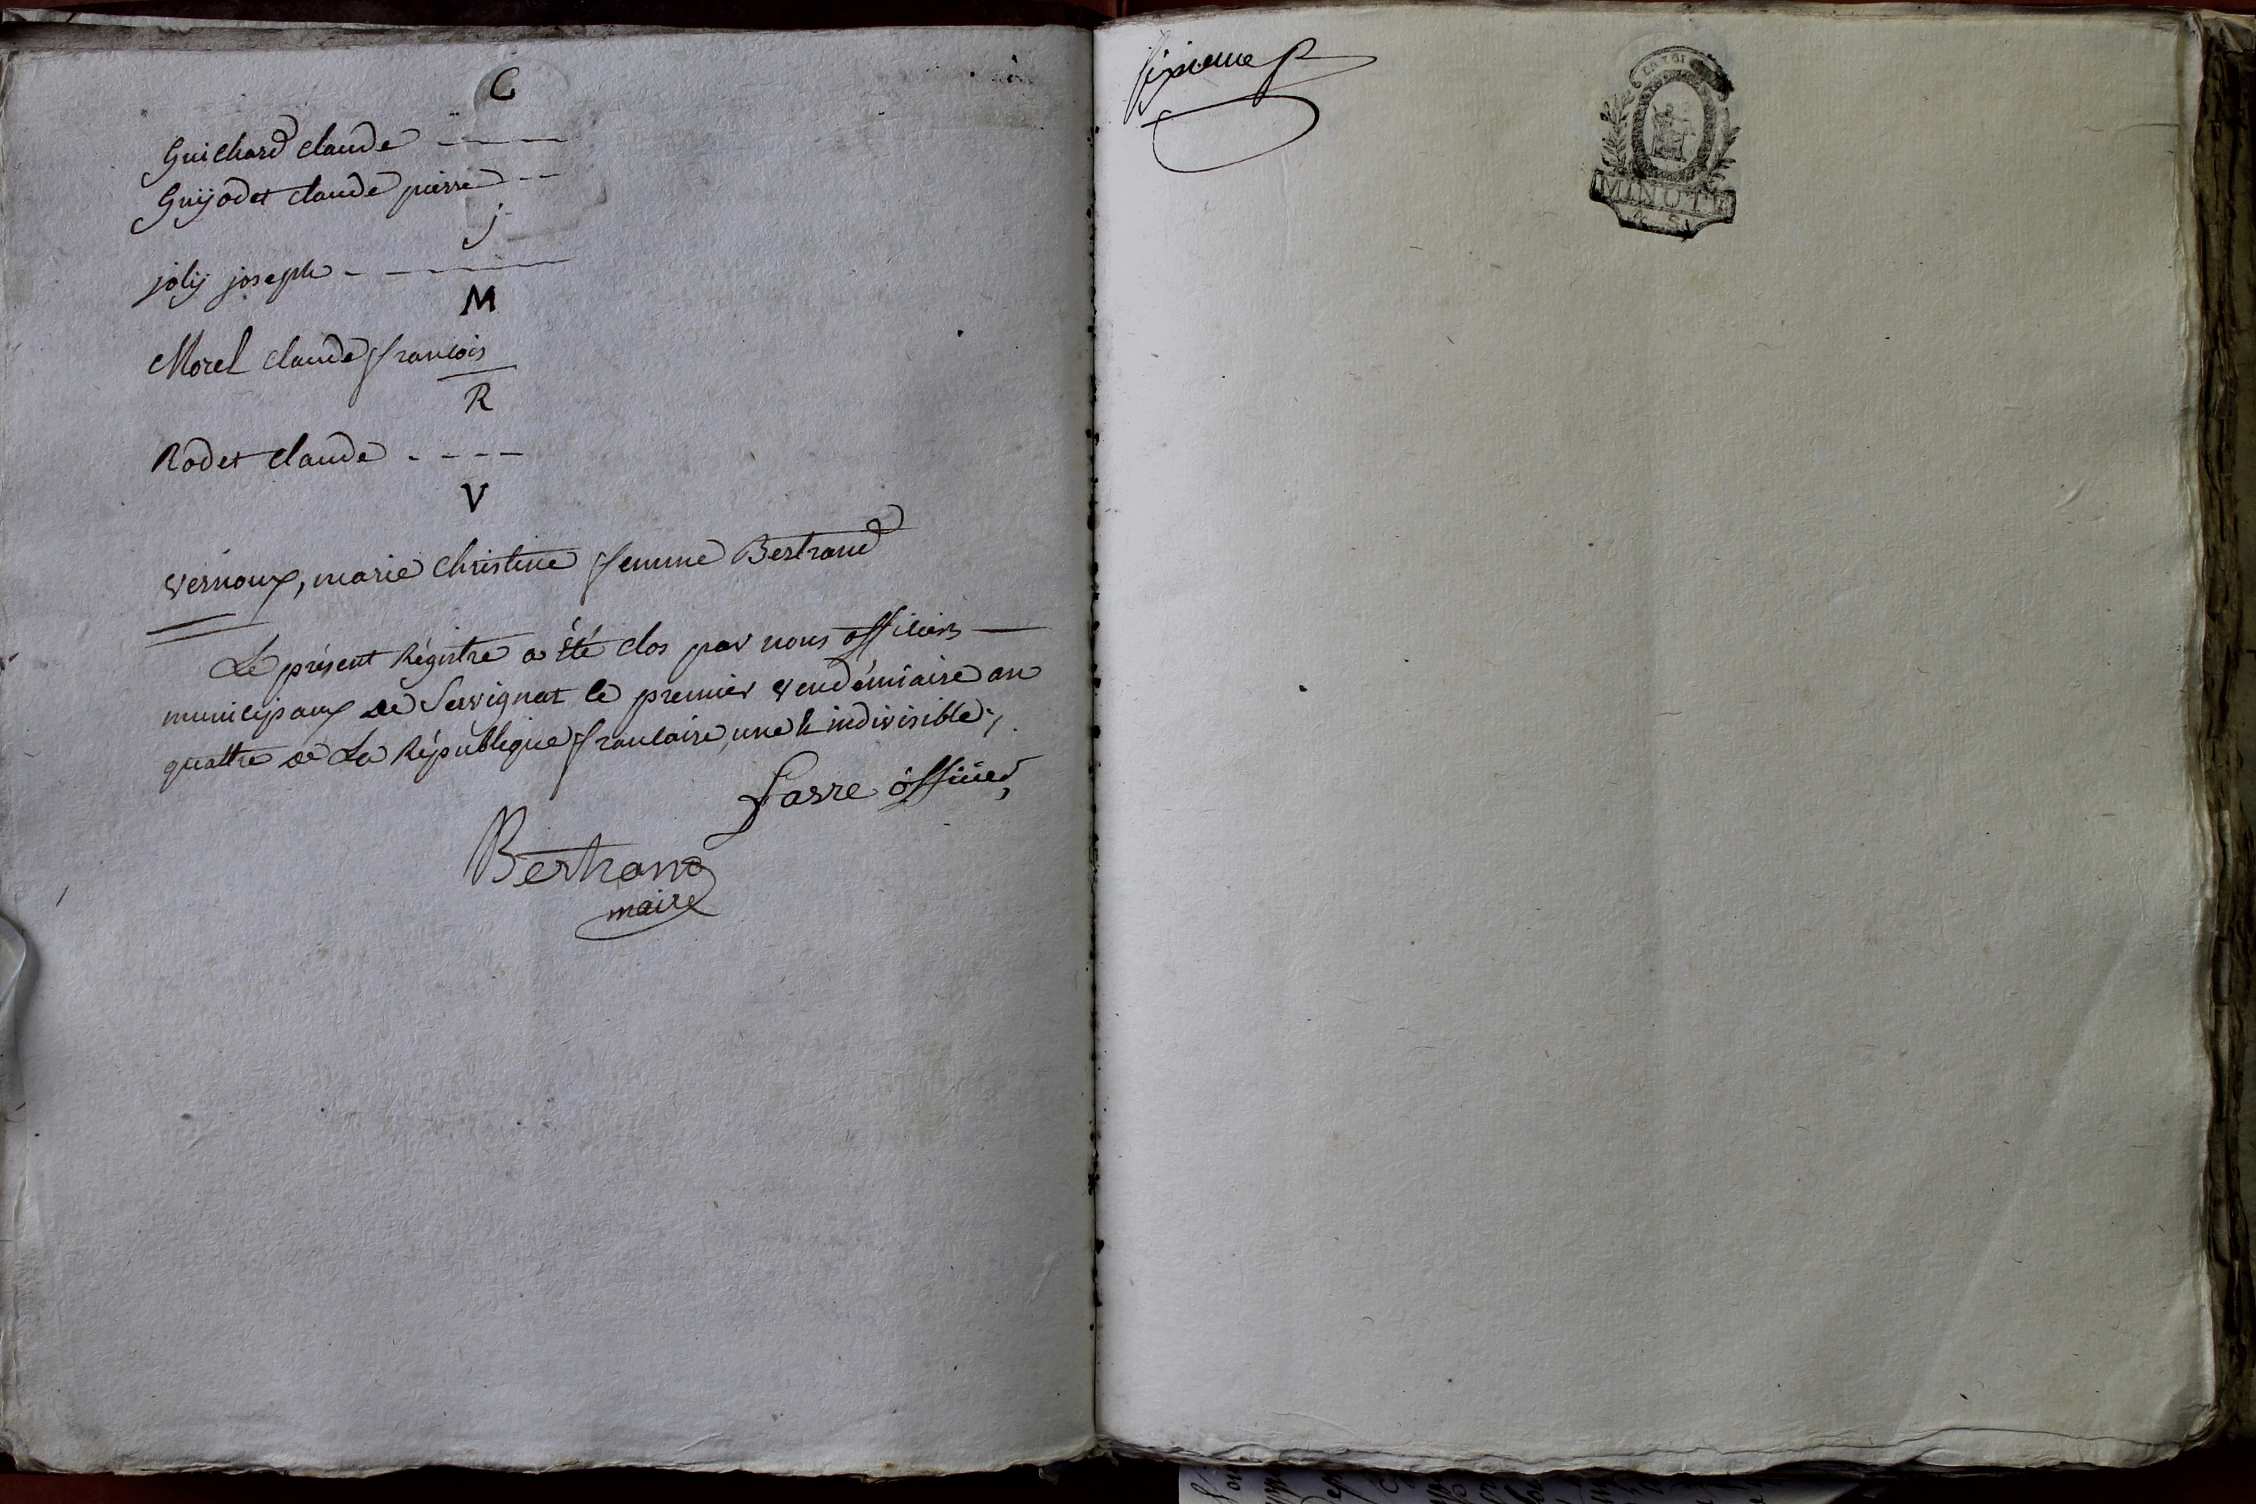 G
Guichard claude
Guijodet claude pierre
j
jolij joseph
M
Morel claude francois
R
Rodet claude
V
vernoux, marie christine femme Bertrand
Le présent Régistre a été clos par nous officiers
municipaux de Servignat le premier vendémiaire an
quattre de La République francaise, une & indivisible
farre officier
Bertrand
maire
sixieme
LA LOI
MINUTE
4 S